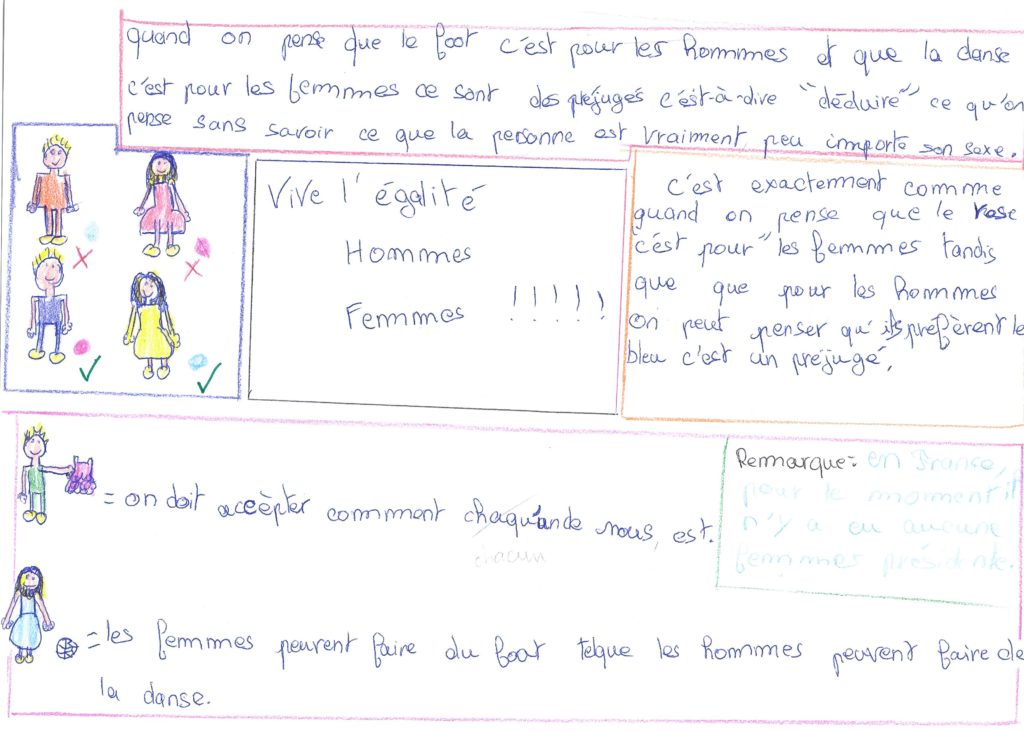 quand on pense que le foot c'est pour les hommes et que la danse
c'est pour les femmes ce sont des préjugés c'est-à-dire "déduire" ce qu'on
pense sans savoir ce que la personne est vraiment, peu importe son sexe.
Vive l'égalité
Hommes
Femmes !!!!!
C'est exactement comme
quand on pense que le rose
c'est pour "les femmes tandis
que que pour les hommes
on peut penser qu'ils préfèrent le
bleu c'est un préjugé.
= on doit accèpter comment chaqu'unde nous, est.
chacun
Remarque: en France,
pour le moment il
n'y a eu aucune
femmes présidente.
= les femmes peuvent faire du foot telque les hommes peuvent faire de
la danse.